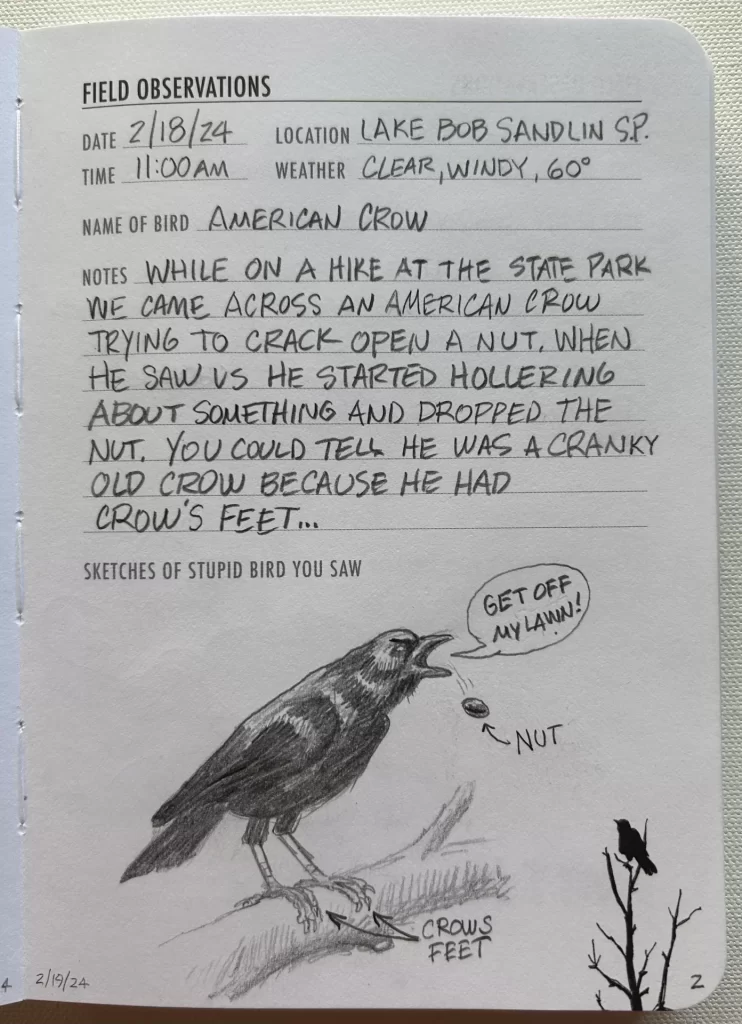 FIELD OBSERVATIONS
DATE 2/18/24 LOCATION LAKE BOB SANDLIN S.P.
TIME 11:00AM WEATHER CLEAR, WINDY, 60°
NAME OF BIRD AMERICAN CROW
NOTES WHILE ON A HIKE AT THE STATE PARK
WE CAME ACROSS AN AMERICAN CROW
TRYING TO CRACK OPEN A NUT. WHEN
HE SAW US HE STARTED HOLLERING
ABOUT SOMETHING AND DROPPED THE
NUT. YOU COULD TELL HE WAS A CRANKY
OLD CROW BECAUSE HE HAD
CROW'S FEET...
SKETCHES OF STUPID BIRD YOU SAW
GET OFF
MY LAWN!
NUT
CROWS
FEET
4
2/19/24
2